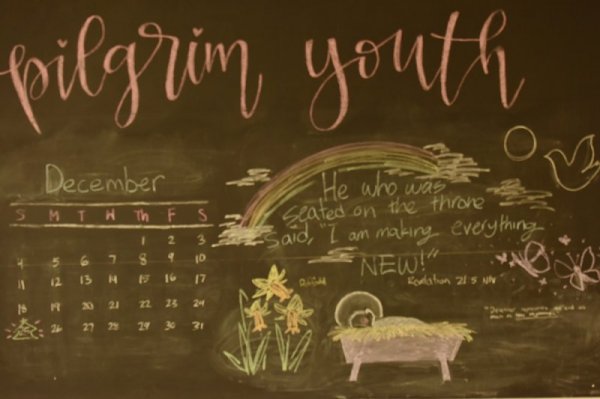 pilgrim youth
December
S M T W Th F S
1 2 3
4 5 6 7 8 9 10
11 12 13 14 15 16 17
18 19 20 21 22 23 24
26 27 28 29 30 31
He who was
seated on the throne
said, "I am making everything
NEW!"
Revelation 21:5 NIV